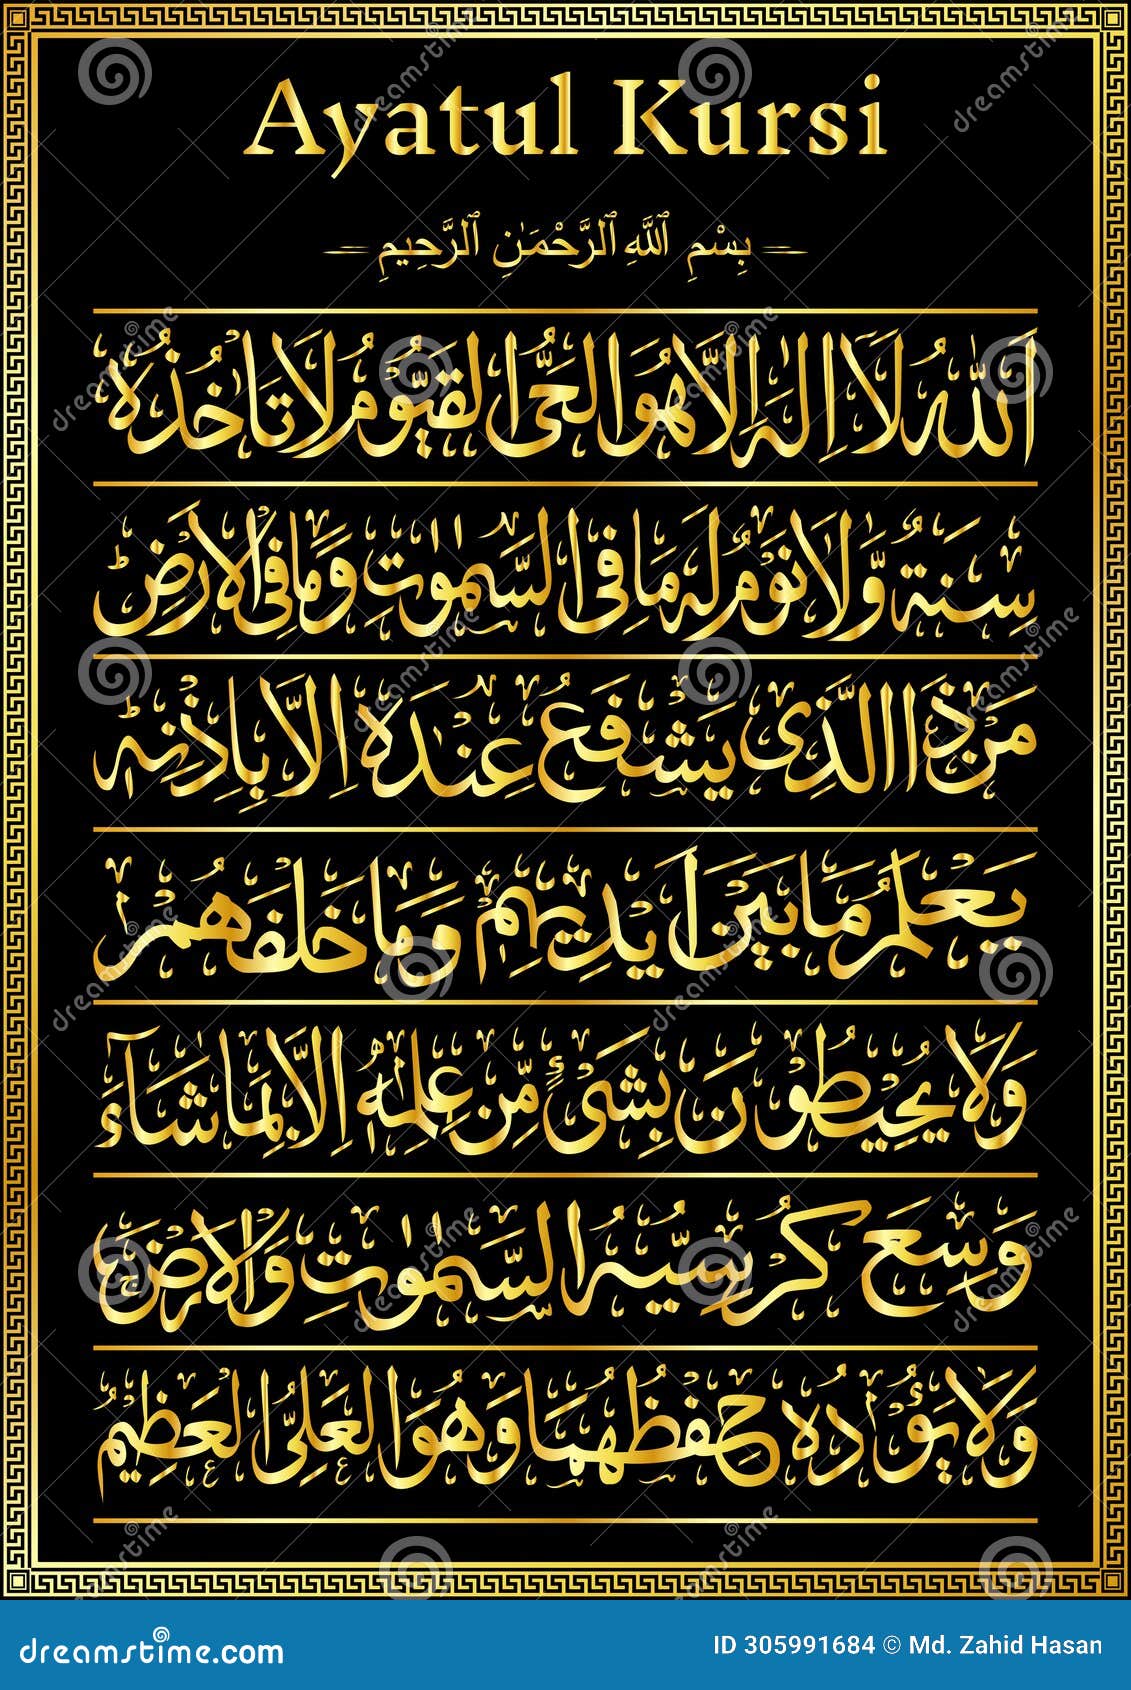 Ayatul Kursi
بِسْمِ ٱللَّهِ ٱلرَّحْمَـٰنِ ٱلرَّحِيمِ
اَللّٰهُ لَآ اِلٰهَ اِلَّا هُوَ الْحَىُّ الْقَيُّوْمُ لَا تَاْخُذُهٗ
سِنَةٌ وَّلَا نَوْمٌ لَهٗ مَا فِى السَّمٰوٰتِ وَمَا فِى الْاَرْضِ ط
مَنْ ذَا الَّذِىْ يَشْفَعُ عِنْدَهٗ اِلَّا بِاِذْنِهٖ ط
يَعْلَمُ مَا بَيْنَ اَيْدِيْهِمْ وَمَا خَلْفَهُمْ
وَلَا يُحِيْطُوْنَ بِشَىْءٍ مِّنْ عِلْمِهٖٓ اِلَّا بِمَا شَآءَ
وَسِعَ كُرْسِيُّهُ السَّمٰوٰتِ وَالْاَرْضَ
وَلَا يَؤُدُهٗ حِفْظُهُمَا وَهُوَ الْعَلِىُّ الْعَظِيْمُ
dreamstime.com
ID 305991684 © Md. Zahid Hasan